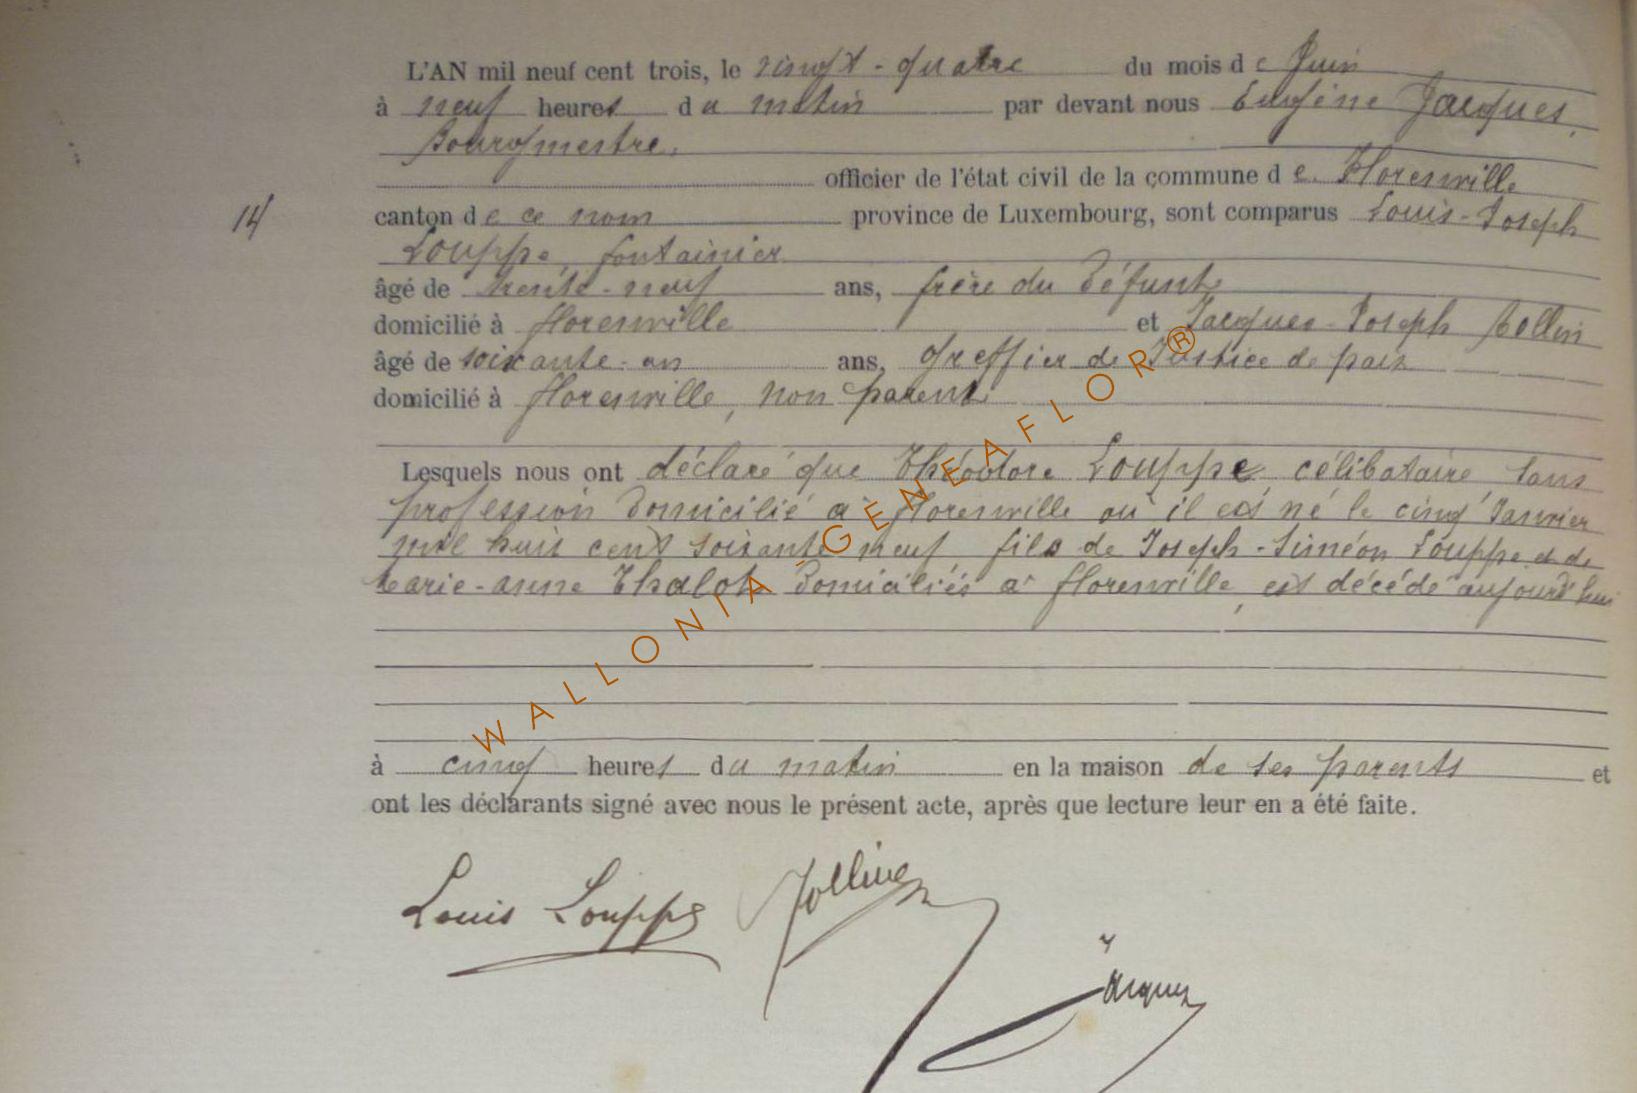 L'AN mil neuf cent trois, le vingt-quatre du mois de Juin
à neuf heures du matin par devant nous Eugène Jacques,
Bourgmestre,
officier de l'état civil de la commune de Florenville
14
canton de ce nom province de Luxembourg, sont comparus Louis-Joseph
Louppe, fontainier
âgé de trente-neuf ans, frère du défunt
domicilié à florenville et Jacques-Joseph Collin
âgé de soixante-un ans, Greffier de Justice de paix
domicilié à florenville, non parent
Lesquels nous ont déclaré que Théodore Louppe célibataire, sans
profession domicilié à florenville où il est né le cinq Janvier
mil huit cent soixante neuf fils de Joseph-Siméon Louppe et de
Marie-anne domiciliés à florenville, est décédé aujourd'hui
à cinq heures du matin en la maison de ses parents et
ont les déclarants signé avec nous le présent acte, après que lecture leur en a été faite.
Louis Louppe
Jacques
WALLONIA - GENEAFLOR®